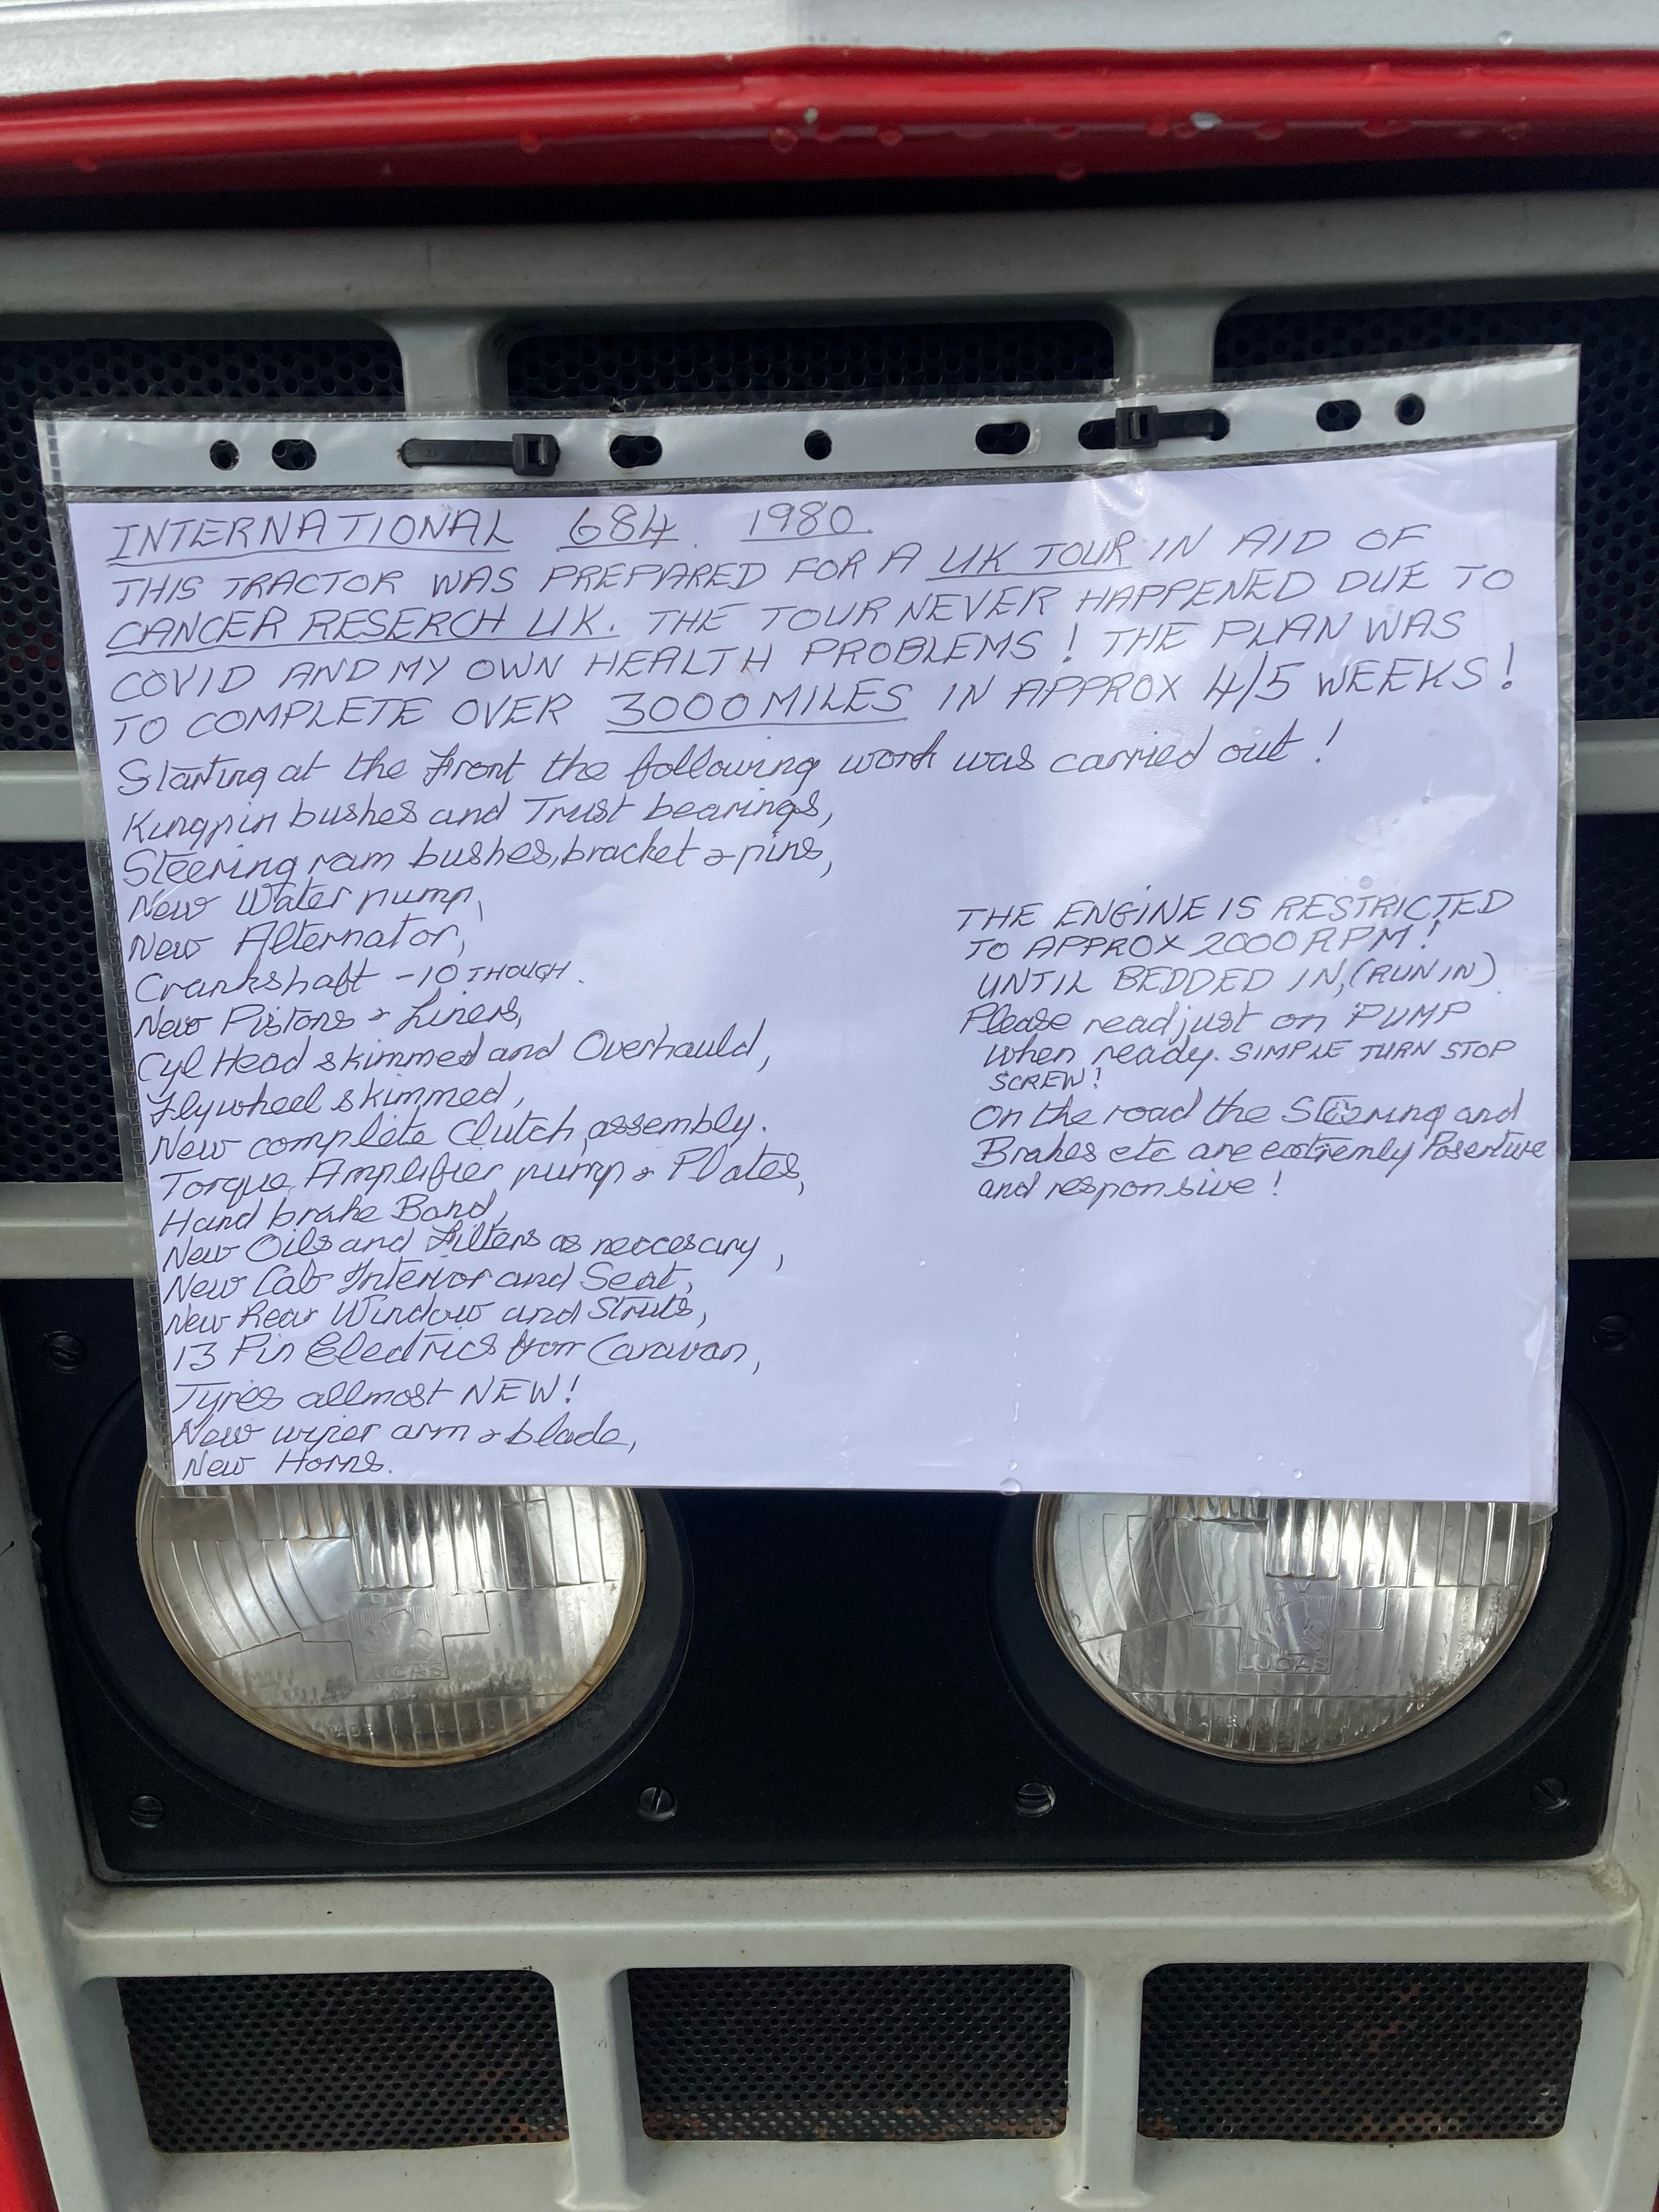 INTERNATIONAL 684. 1980.
THIS TRACTOR WAS PREPARED FOR A UK TOUR IN AID OF
CANCER RESERCH UK. THE TOUR NEVER HAPPENED DUE TO
COVID AND MY OWN HEALTH PROBLEMS! THE PLAN WAS
TO COMPLETE OVER 3000 MILES IN APPROX 4/5 WEEKS!
Starting at the front the following work was carried out!
Kingpin bushes and Trust bearings,
Steering ram bushes, bracket & pins,
New Water pump,
New Alternator,
Crankshaft -10 THOUGH.
New Pistons & Liners,
Cyl Head skimmed and Overhauld,
Flywheel skimmed,
New complete Clutch assembly.
Torque Amplifier pump & Plates,
Hand brake Band,
New Oils and Filters as neccesary,
New Cab Interior and Seat,
New Rear Window and Struts,
13 Pin Electrics from Caravan,
Tyres allmost NEW!
New wiper arm & blade,
New Horns.
THE ENGINE IS RESTRICTED
TO APPROX 2000 RPM!
UNTIL BEDDED IN, (RUN IN)
Please readjust on PUMP
when ready. SIMPLE TURN STOP
SCREW!
On the road the Steering and
Brakes etc are extremly Posertive
and responsive!
LUCAS
LUCAS